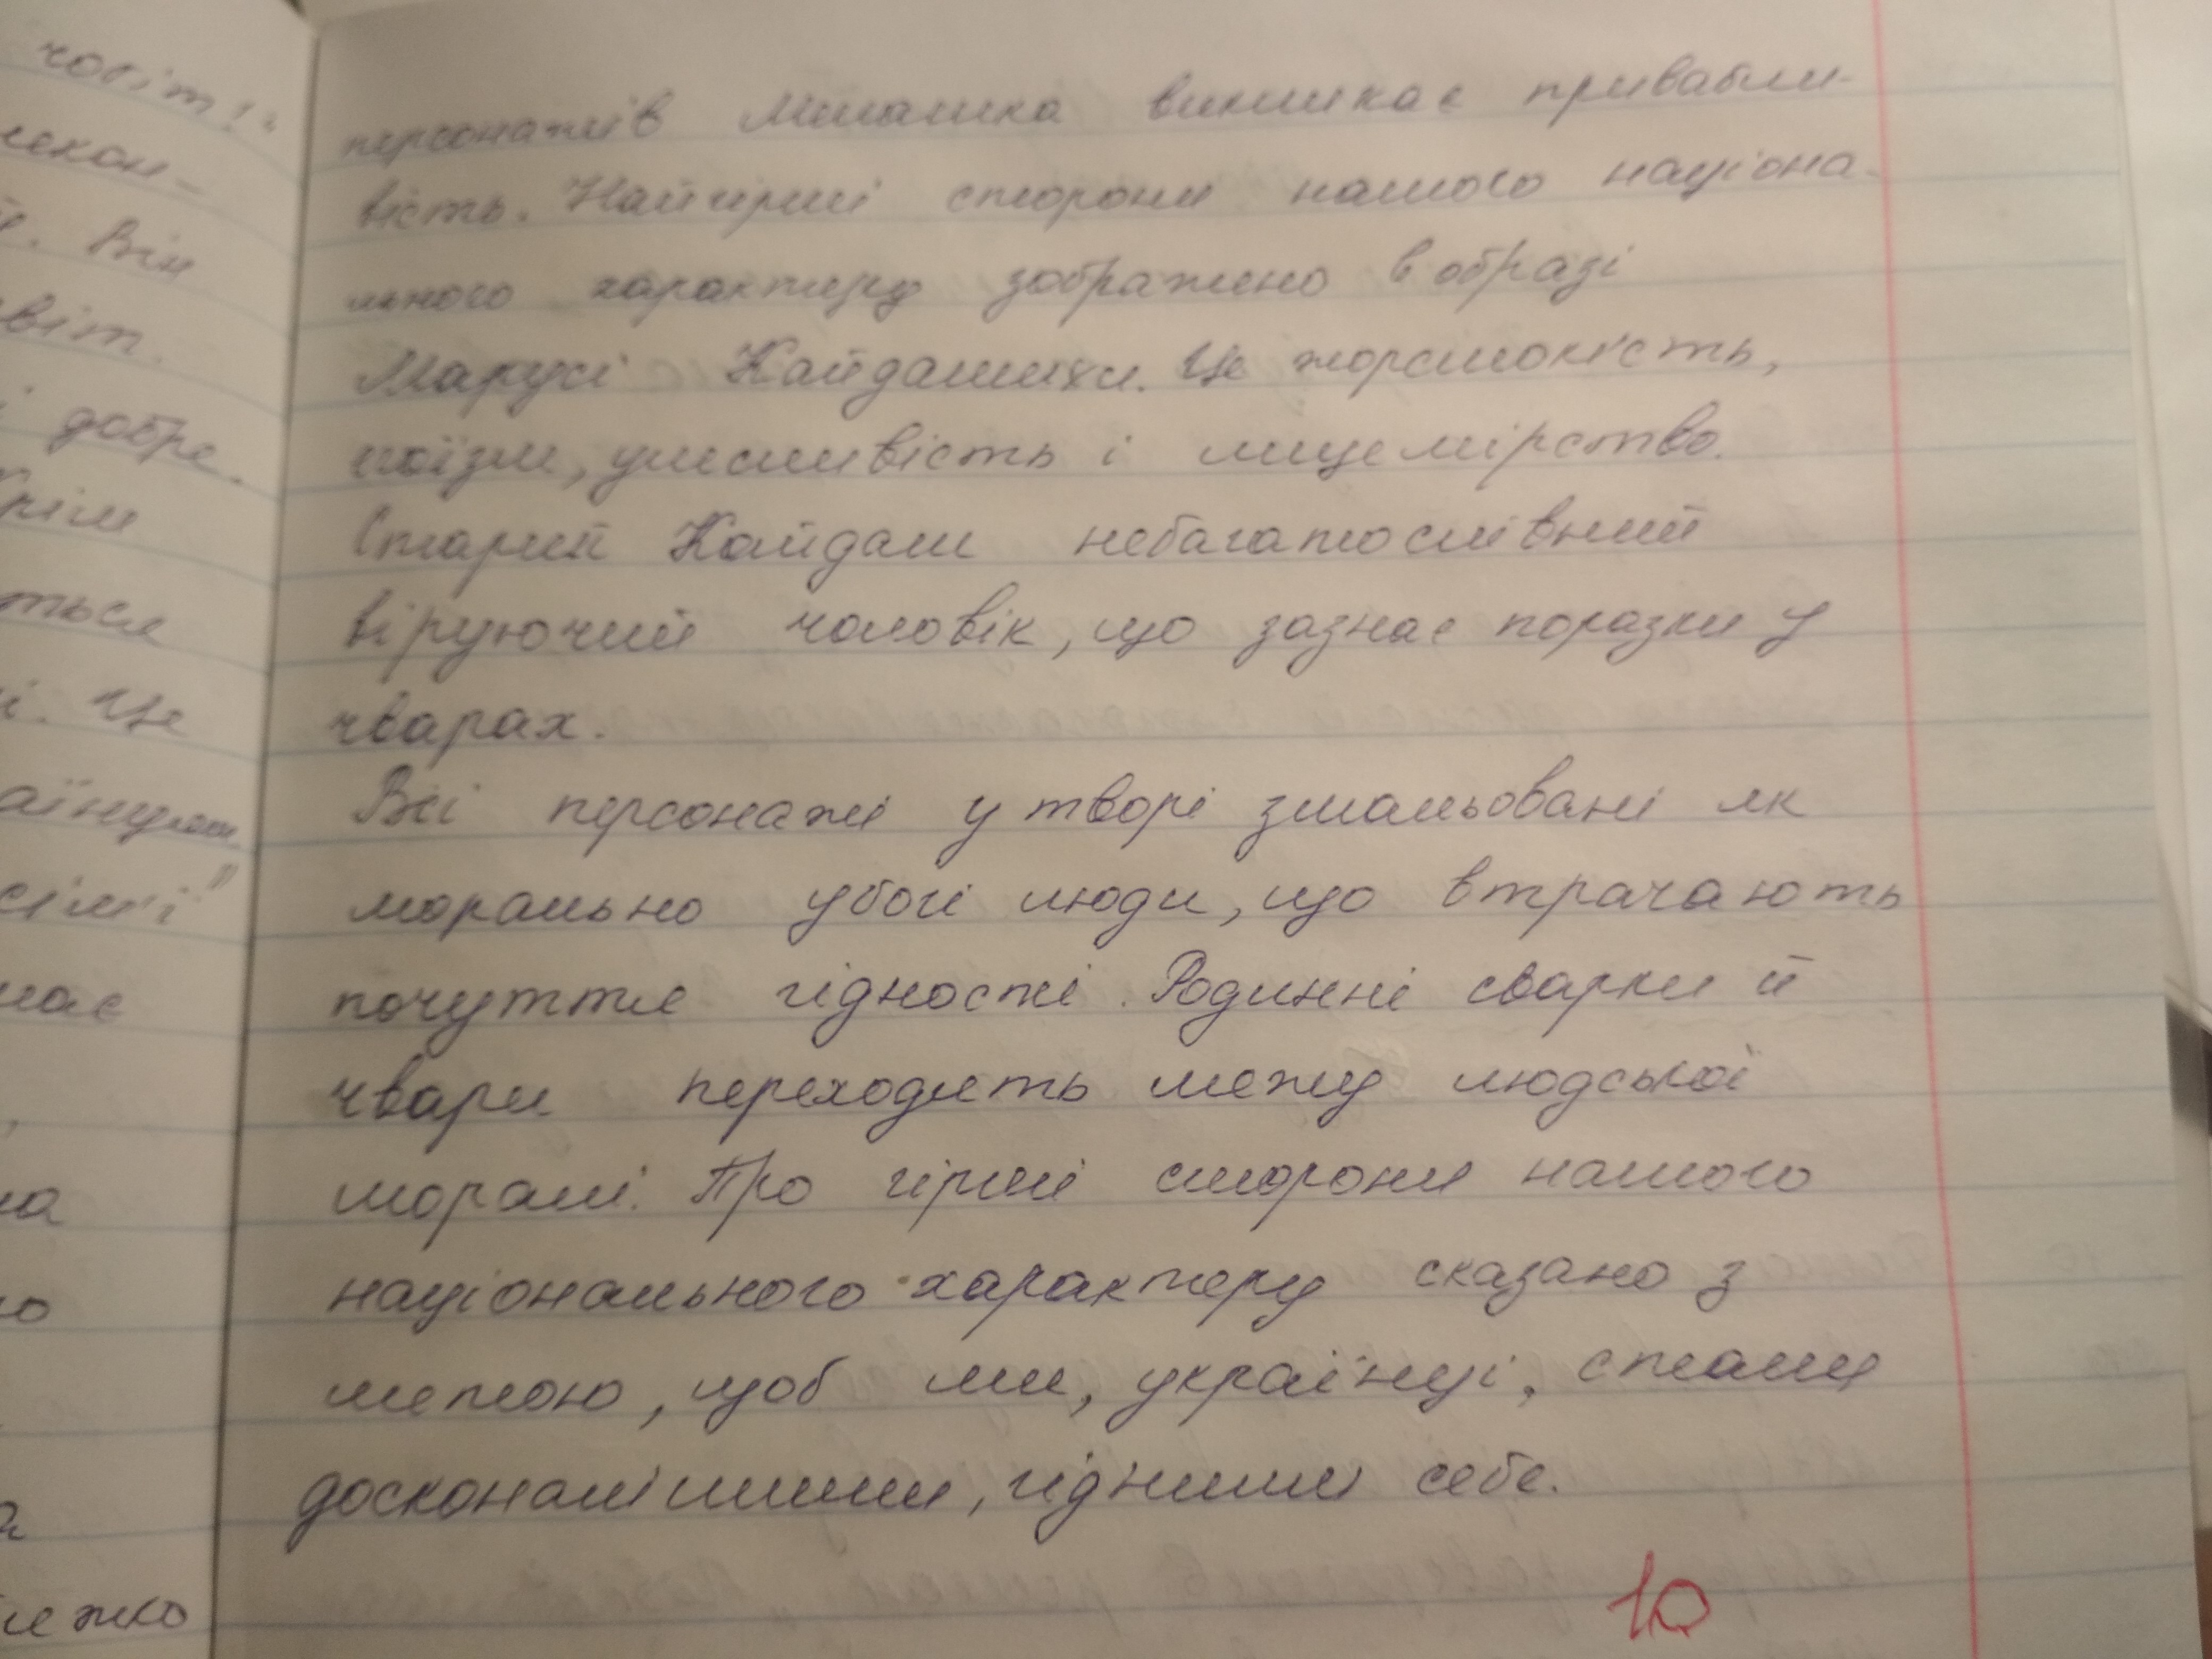 чобіт!"
Він
світ.
і добре.
крім
ться
і. Це
сім'ї"
має
на
го
межко
персонажів Мелашка викликає привабли-
вість. Найгірші сторони нашого націона-
льного характеру зображено в образі
Марусі Кайдашихи. Це жорстокість,
егоїзм, улесливість і лицемірство.
Старий Кайдаш небагатослівний
віруючий чоловік, що зазнає поразки у
чварах.
Всі персонажі у творі змальовані як
морально убогі люди, що втрачають
почуття гідності. Родинні сварки й
чвари переходять межу людської
моралі. Про гірші сторони нашого
національного характеру сказано з
метою, щоб ми, українці, стали
досконалішими, гідними себе.
10